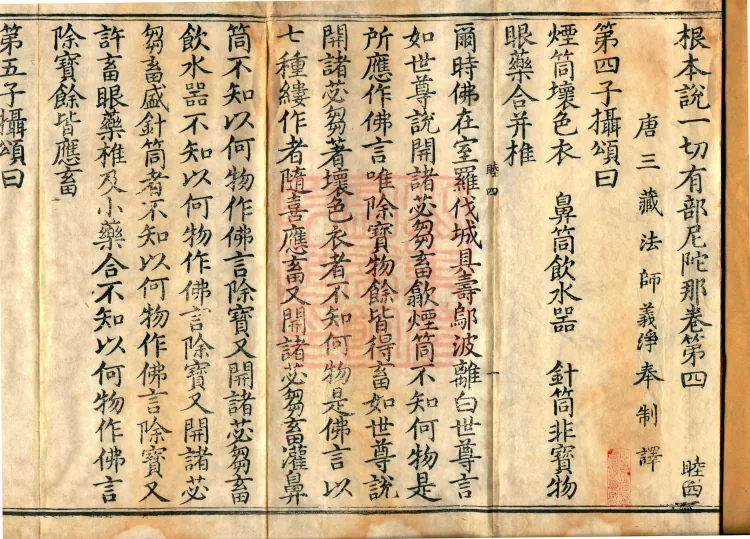 根本說一切有部尼陀那卷第四 睦四
唐三藏法師義淨奉 制譯
第四子攝頌曰
煙筒壞色衣 鼻筒飲水器 針筒非寶物
眼藥合并椎
睦四 一
爾時佛在室羅伐城具壽鄔波離白世尊言
如世尊說開諸苾芻畜歠煙筒不知何物是
所應作佛言唯除寶物餘皆得畜如世尊說
開諸苾芻著壞色衣者不知何物是佛言以
七種縷作者隨喜應畜又開諸苾芻畜灌鼻
筒不知以何物作佛言除寶又開諸苾芻畜
飲水器不知以何物作佛言除寶又開諸苾
芻畜盛針筒者不知以何物作佛言除寶又
許畜眼藥椎及小藥合不知以何物作佛言
除寶餘皆應畜
第五子攝頌曰